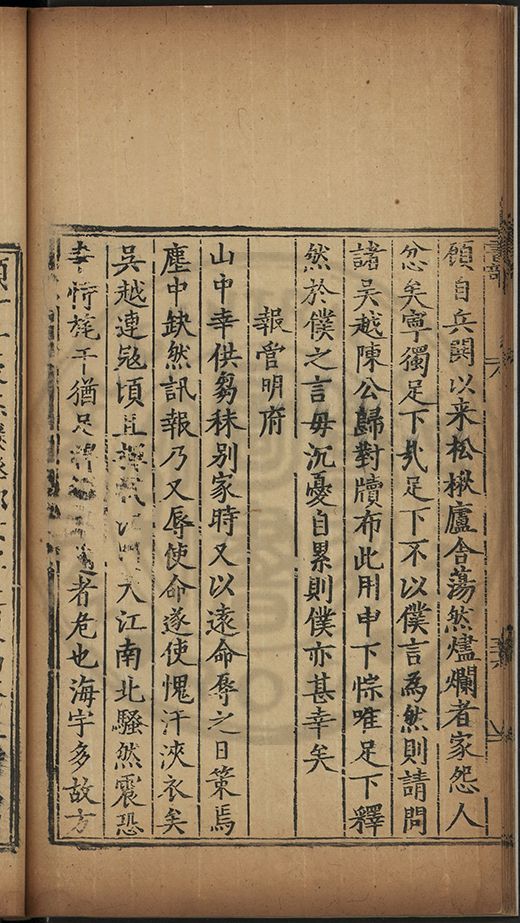 顧自兵闘以来松楸廬舎蕩然燼爛者家怨人
忿矣寧獨足下㢤足下不以僕言為然則請問
諸吴越陳公歸對牘布此用申下悰唯足下釋
然於僕之言毋沉憂自累則僕亦甚幸矣
報管明府
山中幸供芻秣别家時又以遠命辱之日策焉
塵中缺然訊報乃又辱使命遂使愧汗浹衣矣
吴越連㓂頃且大江南北騷然震恐
恃旄干猶足者危也海宇多故方